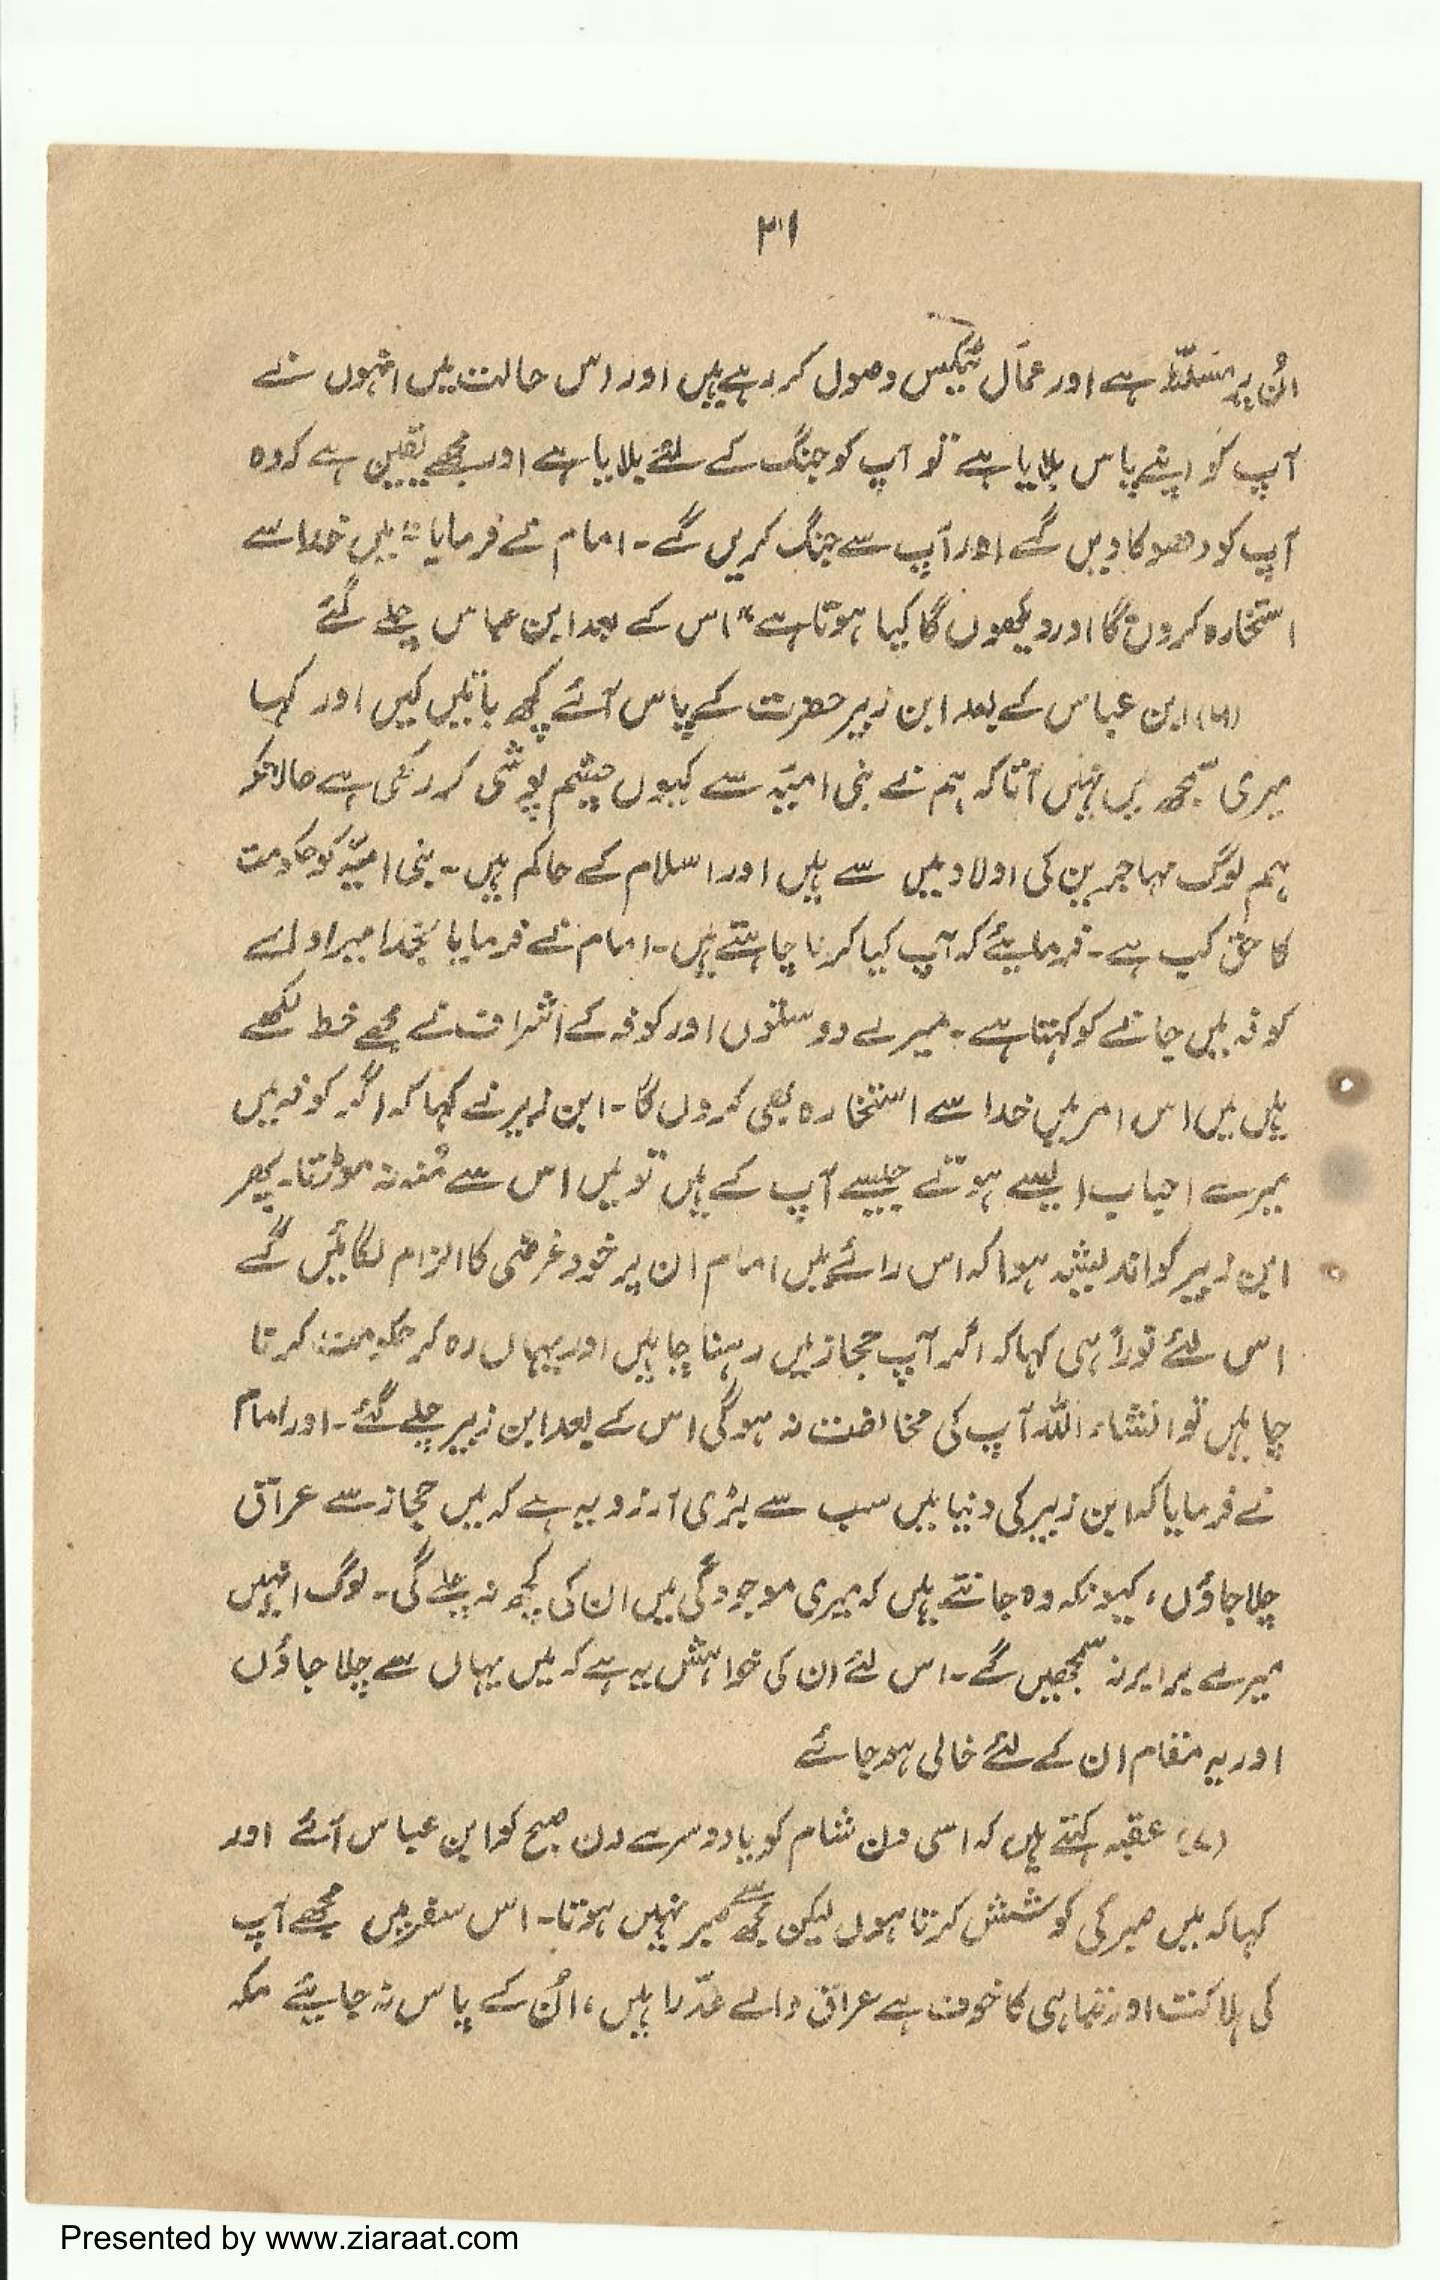 ۳۱
اُن پر مسلّط ہے اور عمّال ٹیکس وصول کر رہے ہیں اور اس حالت میں انہوں نے
آپ کو اپنے پاس بلایا ہے تو آپ کو جنگ کے لئے بلایا ہے اور مجھے یقین ہے کہ وہ
آپ کو دھوکا دیں گے اور آپ سے جنگ کریں گے۔ امام نے فرمایا "میں خدا سے
استخارہ کروں گا اور دیکھوں گا کیا ہوتا ہے" اس کے بعد ابن عباس چلے گئے
(۶) ابن عباس کے بعد ابن زبیر حضرت کے پاس آئے کچھ باتیں کیں اور کہا
میری سمجھ میں نہیں آتا کہ ہم نے بنی امیّہ سے کیوں چشم پوشی کر رکھی ہے حالانکہ
ہم لوگ مہاجرین کی اولاد میں سے ہیں اور اسلام کے حاکم ہیں۔ بنی امیّہ کو حکومت
کا حق کب ہے۔ فرمایئے کہ آپ کیا کرنا چاہتے ہیں۔ امام نے فرمایا بخدا میرا دل
کوفہ میں جانے کو کہتا ہے۔ میرے دوستوں اور کوفہ کے اشراف نے مجھے خط لکھے
ہیں میں اس امر میں خدا سے استخارہ بھی کروں گا۔ ابن زبیر نے کہا کہ اگر کوفہ میں
میرے احباب ایسے ہوتے جیسے آپ کے ہیں تو میں اس سے مُنہ نہ موڑتا۔ پھر
ابن زبیر کو اندیشہ ہوا کہ اس رائے میں امام ان پر خود غرضی کا الزام لگائیں گے
اس لئے فوراً ہی کہا کہ اگر آپ حجاز میں رہنا چاہیں اور یہاں رہ کر حکومت کرنا
چاہیں تو انشاء اللہ آپ کی مخالفت نہ ہوگی اس کے بعد ابن زبیر چلے گئے۔ اور امام
نے فرمایا کہ ابن زبیر کی دنیا میں سب سے بڑی آرزو یہ ہے کہ میں حجاز سے عراق
چلا جاؤں، کیونکہ وہ جانتے ہیں کہ میری موجودگی میں ان کی کچھ نہ چلے گی۔ لوگ انہیں
میرے برابر نہ سمجھیں گے۔ اس لئے ان کی خواہش یہ ہے کہ میں یہاں سے چلا جاؤں
اور یہ مقام ان کے لئے خالی ہو جائے
(۷) عقبہ کہتے ہیں کہ اسی دن شام کو یا دوسرے دن صبح کو ابن عباس آئے اور
کہا کہ میں صبر کی کوشش کرتا ہوں لیکن مجھ سے صبر نہیں ہوتا۔ اس سفر میں مجھے آپ
کی ہلاکت اور تباہی کا خوف ہے عراق والے غدّار ہیں، اُن کے پاس نہ جایئے مکہ
Presented by www.ziaraat.com